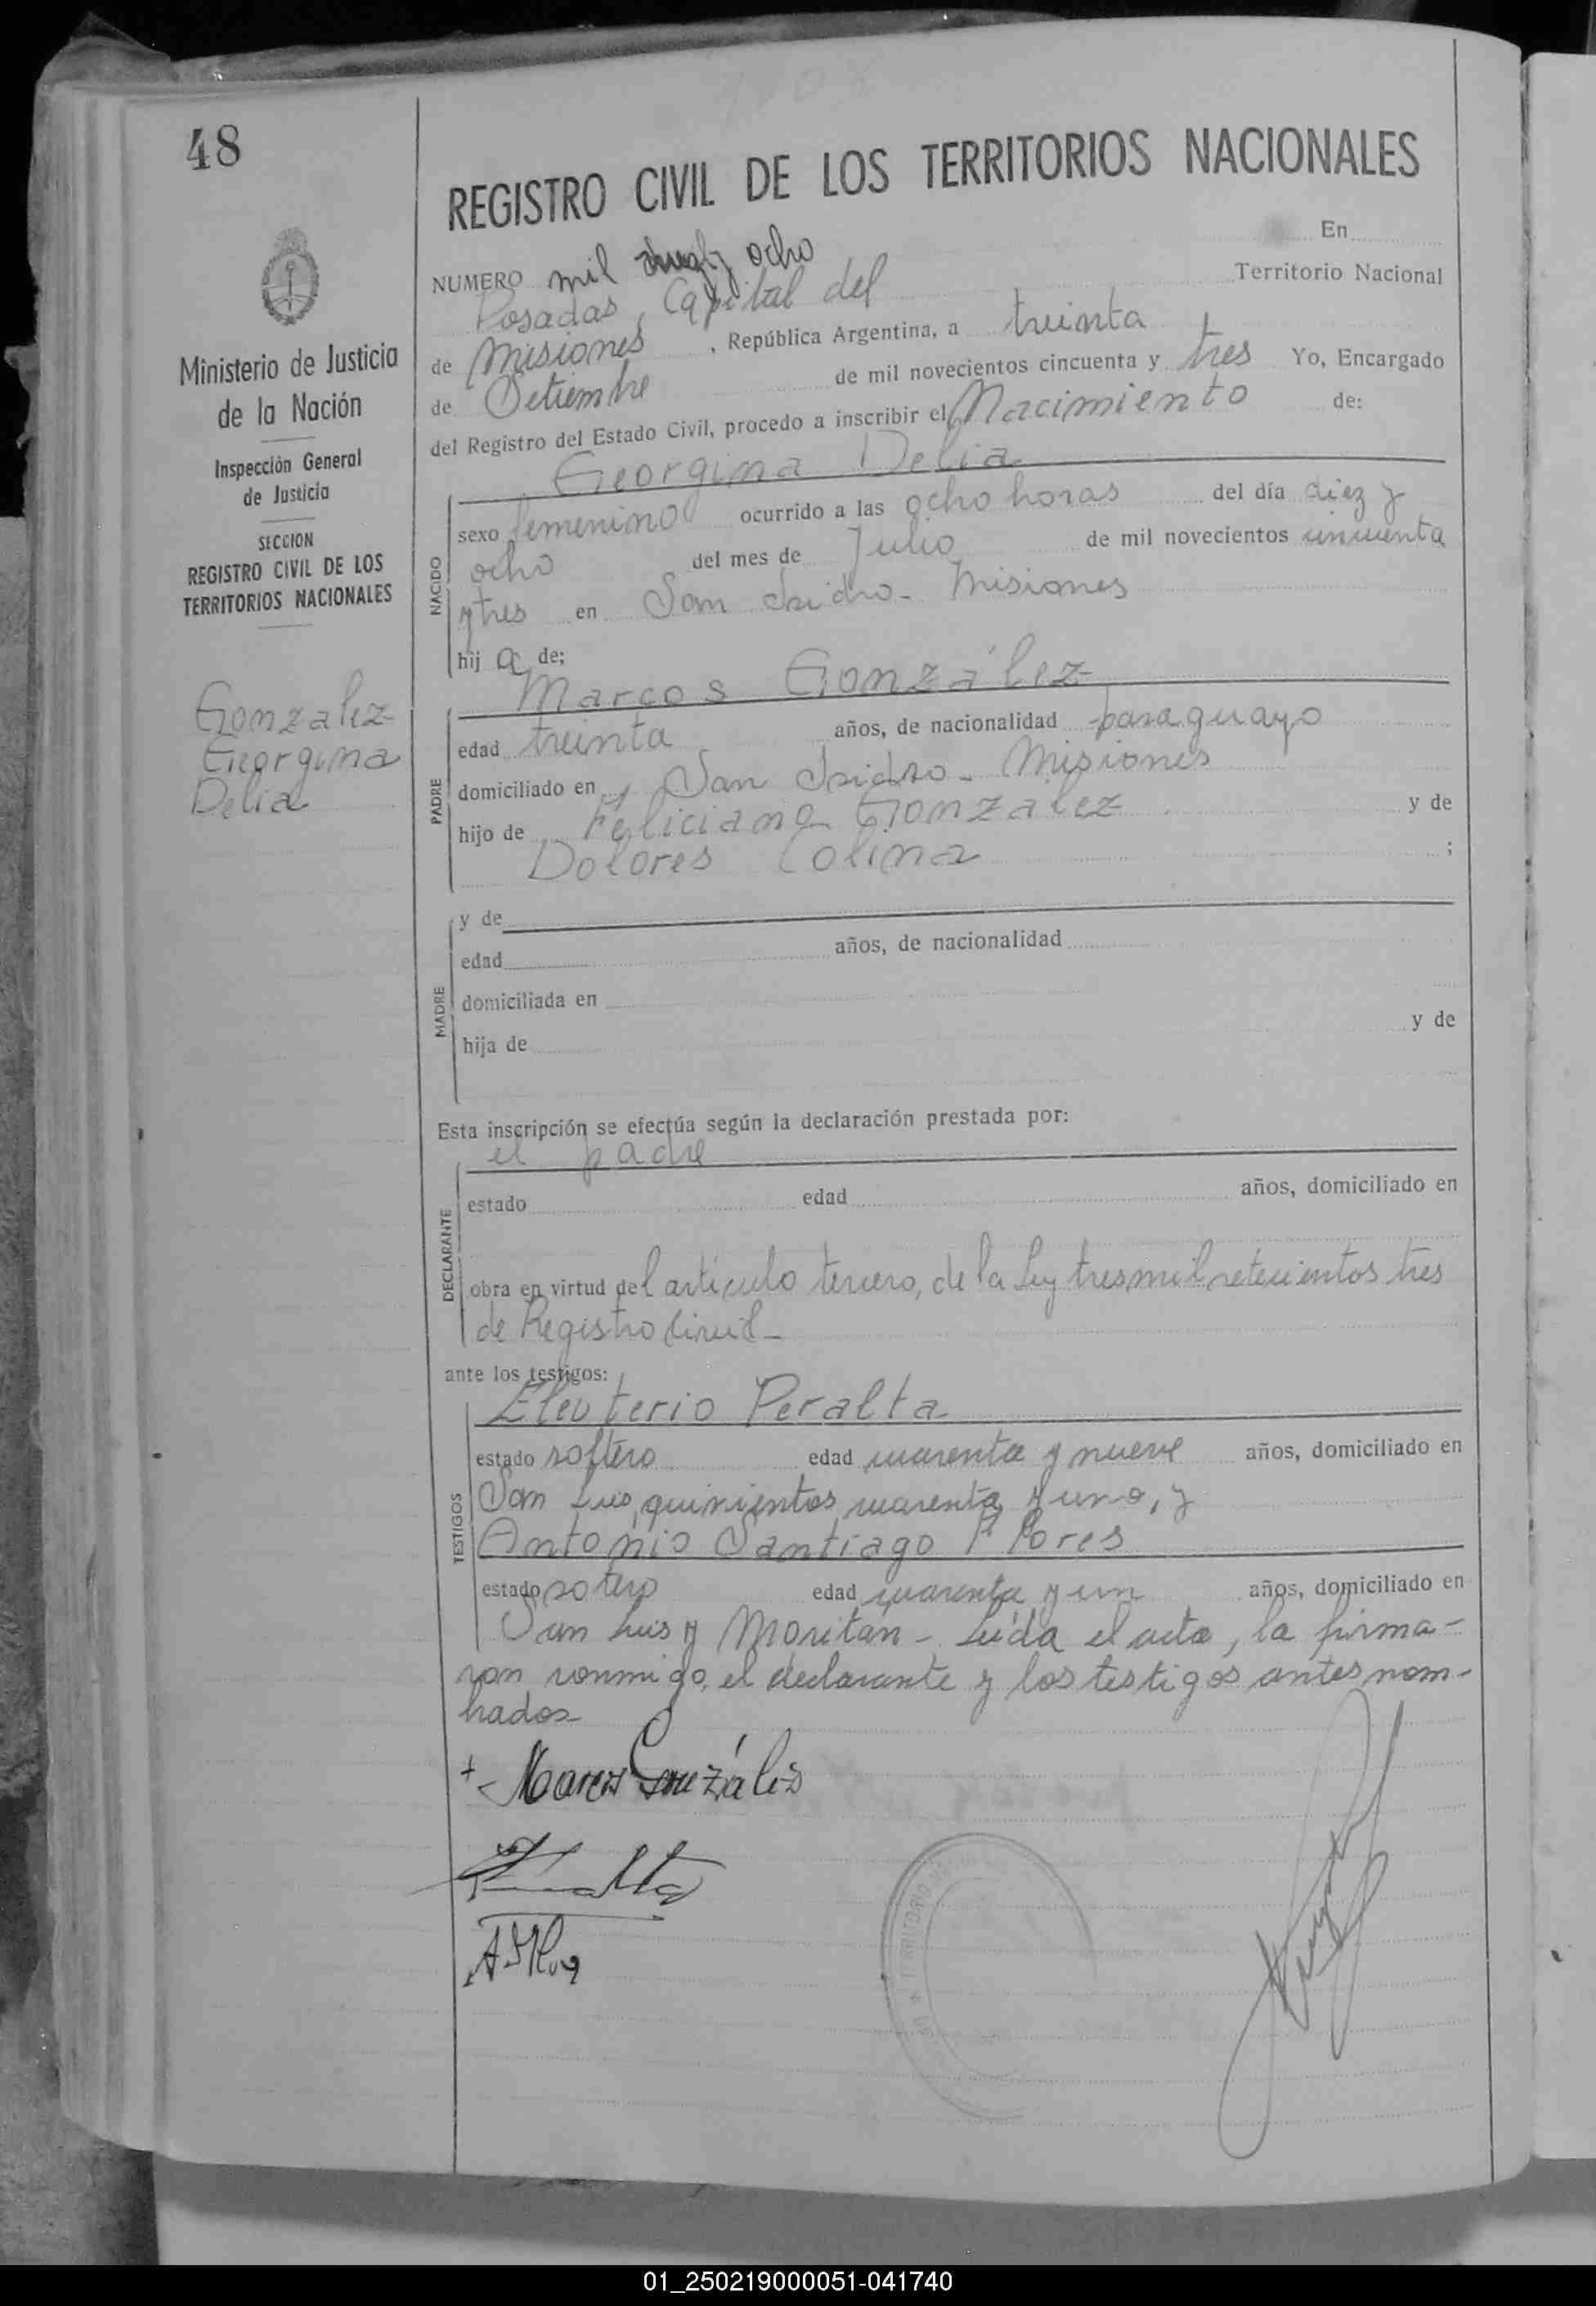 48
REGISTRO CIVIL DE LOS TERRITORIOS NACIONALES
Ministerio de Justicia
de la Nación
Inspección General
de Justicia
SECCION
REGISTRO CIVIL DE LOS
TERRITORIOS NACIONALES
Gonzalez
Georgina
Delia
NUMERO mil ocho En
Posadas, Capital del Territorio Nacional
de Misiones, República Argentina, a treinta
de Setiembre de mil novecientos cincuenta y tres Yo, Encargado
del Registro del Estado Civil, procedo a inscribir el Nacimiento de:
Georgina Delia
NACIDO
sexo femenino ocurrido a las ocho horas del día diez y
ocho del mes de Julio de mil novecientos cincuenta
y tres en San Isidro - Misiones
hij a de;
Marcos González
PADRE
edad treinta años, de nacionalidad paraguayo
domiciliado en San Isidro - Misiones
hijo de Feliciano Gonzalez y de
Dolores Colina ;
MADRE
y de
edad años, de nacionalidad
domiciliada en
hija de y de
Esta inscripción se efectúa según la declaración prestada por:
el padre
DECLARANTE
estado edad años, domiciliado en
obra en virtud del articulo tercero, de la Ley tres mil setecientos tres
de Registro Civil -
ante los testigos:
Eleuterio Peralta
TESTIGOS
estado soltero edad cuarenta y nueve años, domiciliado en
San Luis, quinientos cuarenta y uno, y
Antonio Santiago Flores
estado sotero edad cuarenta y un años, domiciliado en
San Luis y Moritán - Leída el acta, la firma-
ron conmigo, el declarante y los testigos antes nom-
brados -
+ Marcos González
TERRITORIO
01_250219000051-041740